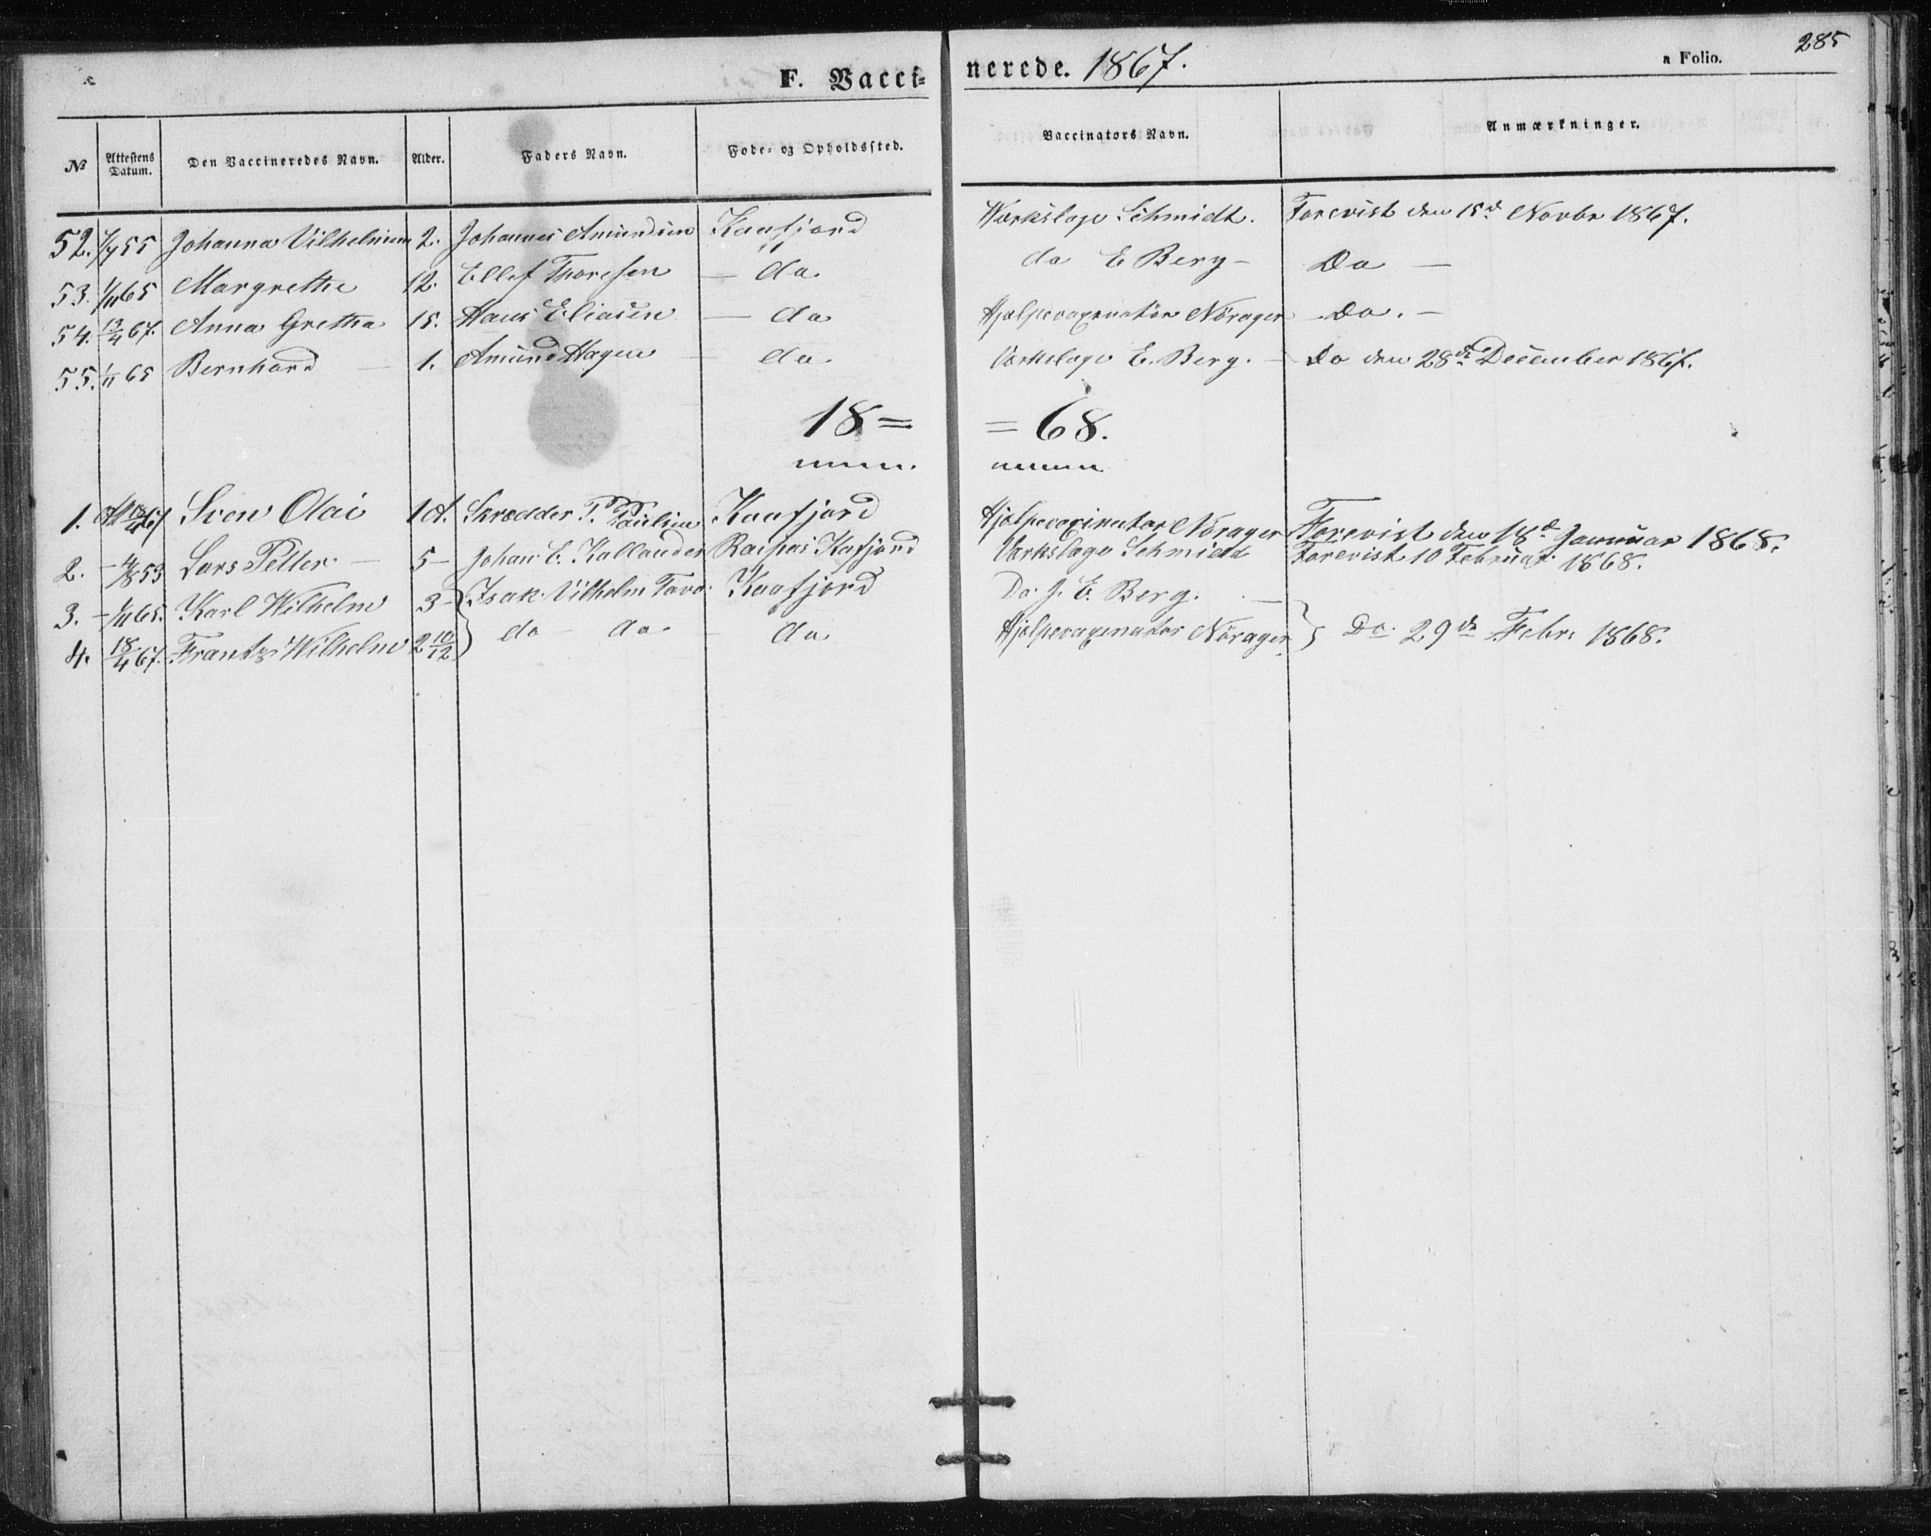 285
F. Vacci- nerede. 1867. a Folio.
No Attestens Datum. Den Vaccineredes Navn. Alder. Faders Navn. Føde- og Opholdssted. Vaccinators Navn. Anmærkninger.
52. 55 Johanna Vilhelmine 2. Johannes Amundsen Kaafjord Værkslæge Schmidt. Forevist den 15d Novbr 1867.
53. 1/11 65 Margrethe 12. Ellef Thoresen — do do E Berg — Do —
54. 13/4 67. Anna Gretha 15. Hans Eliasen — do Hjælpevaxinatør Nörager Do. —
55. 1/11 65 Bernhard — 1. Amund Hagen — do Værkslæge E. Berg. — Do den 28de December 1867.
18= =68.
1. 67 Sven Olai 1 Skrædder P. Paulsen Kaafjord Hjælpevaxinatør Nörager Forevist den 18de Januar 1868.
2. — 53 Lars Petter — 5 — Johan E. Kallander Raipas Kafjord Værkslæge Schmidt Forevist 10 Februar 1868.
3. — 1/11 65. Karl Wilhelm 3 — } Isak Vilhelm Tavo Kaafjord Do. J. E. Berg. —
4. 18/4 67. Frantz Wilhelm 2 10/12 } do — do — do Hjælpevaxinatør Nörager. } Do. 29de Febr. 1868.